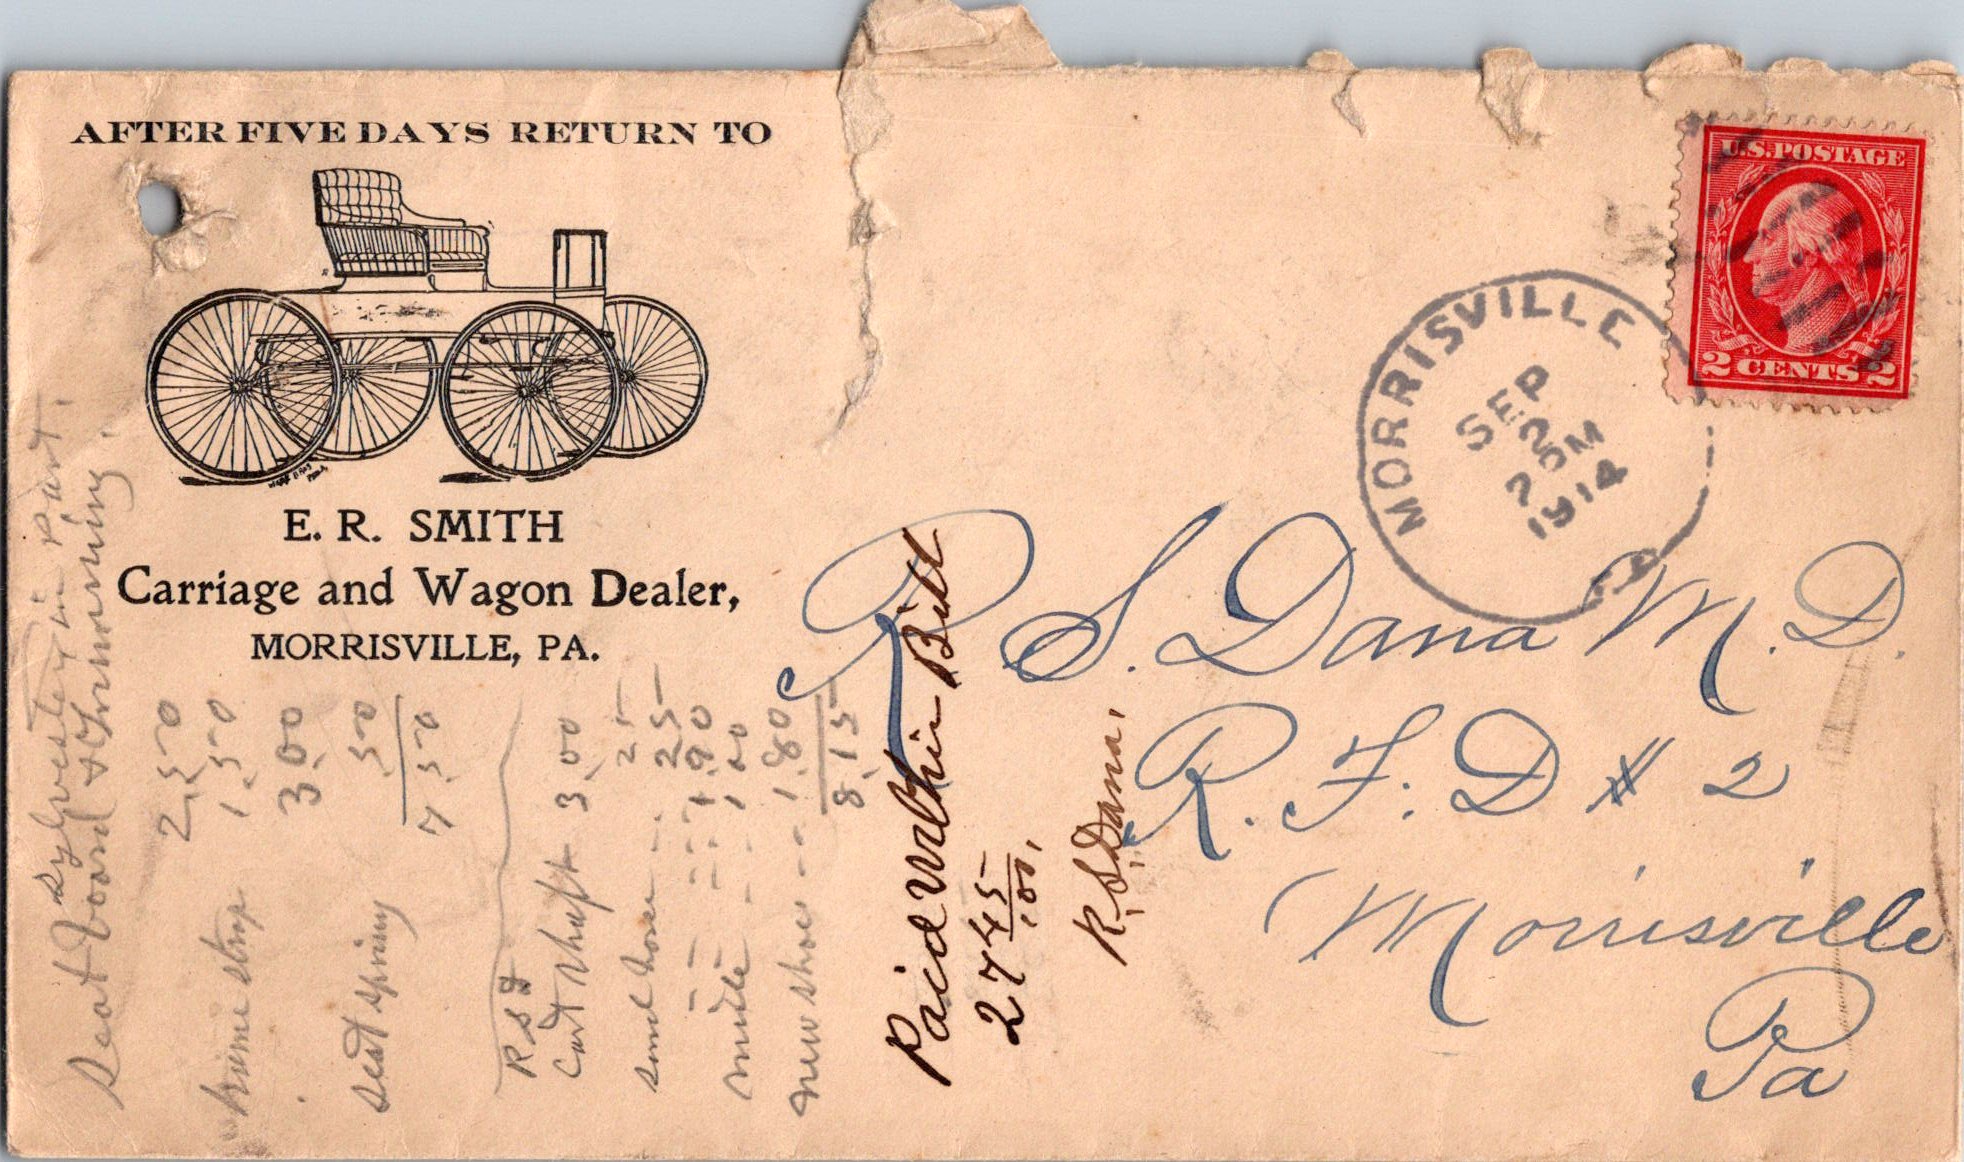 AFTER FIVE DAYS RETURN TO
E. R. SMITH
Carriage and Wagon Dealer,
MORRISVILLE, PA.
U.S. POSTAGE
2 CENTS 2
MORRISVILLE
SEP
2
PM
1914
PA
R S. Dana M. D.
R. F. D # 2
Morrisville
Pa
Paid Within Bill
27 45/100,
R. S. Dana,
Sylvester in part.
Seat board & trimming,
2.50
1.50
3.00
seat spring .50
7.50
R S
Cart shaft 3.00
25
25
1.90
1.00
new shoes 1.80
8.15